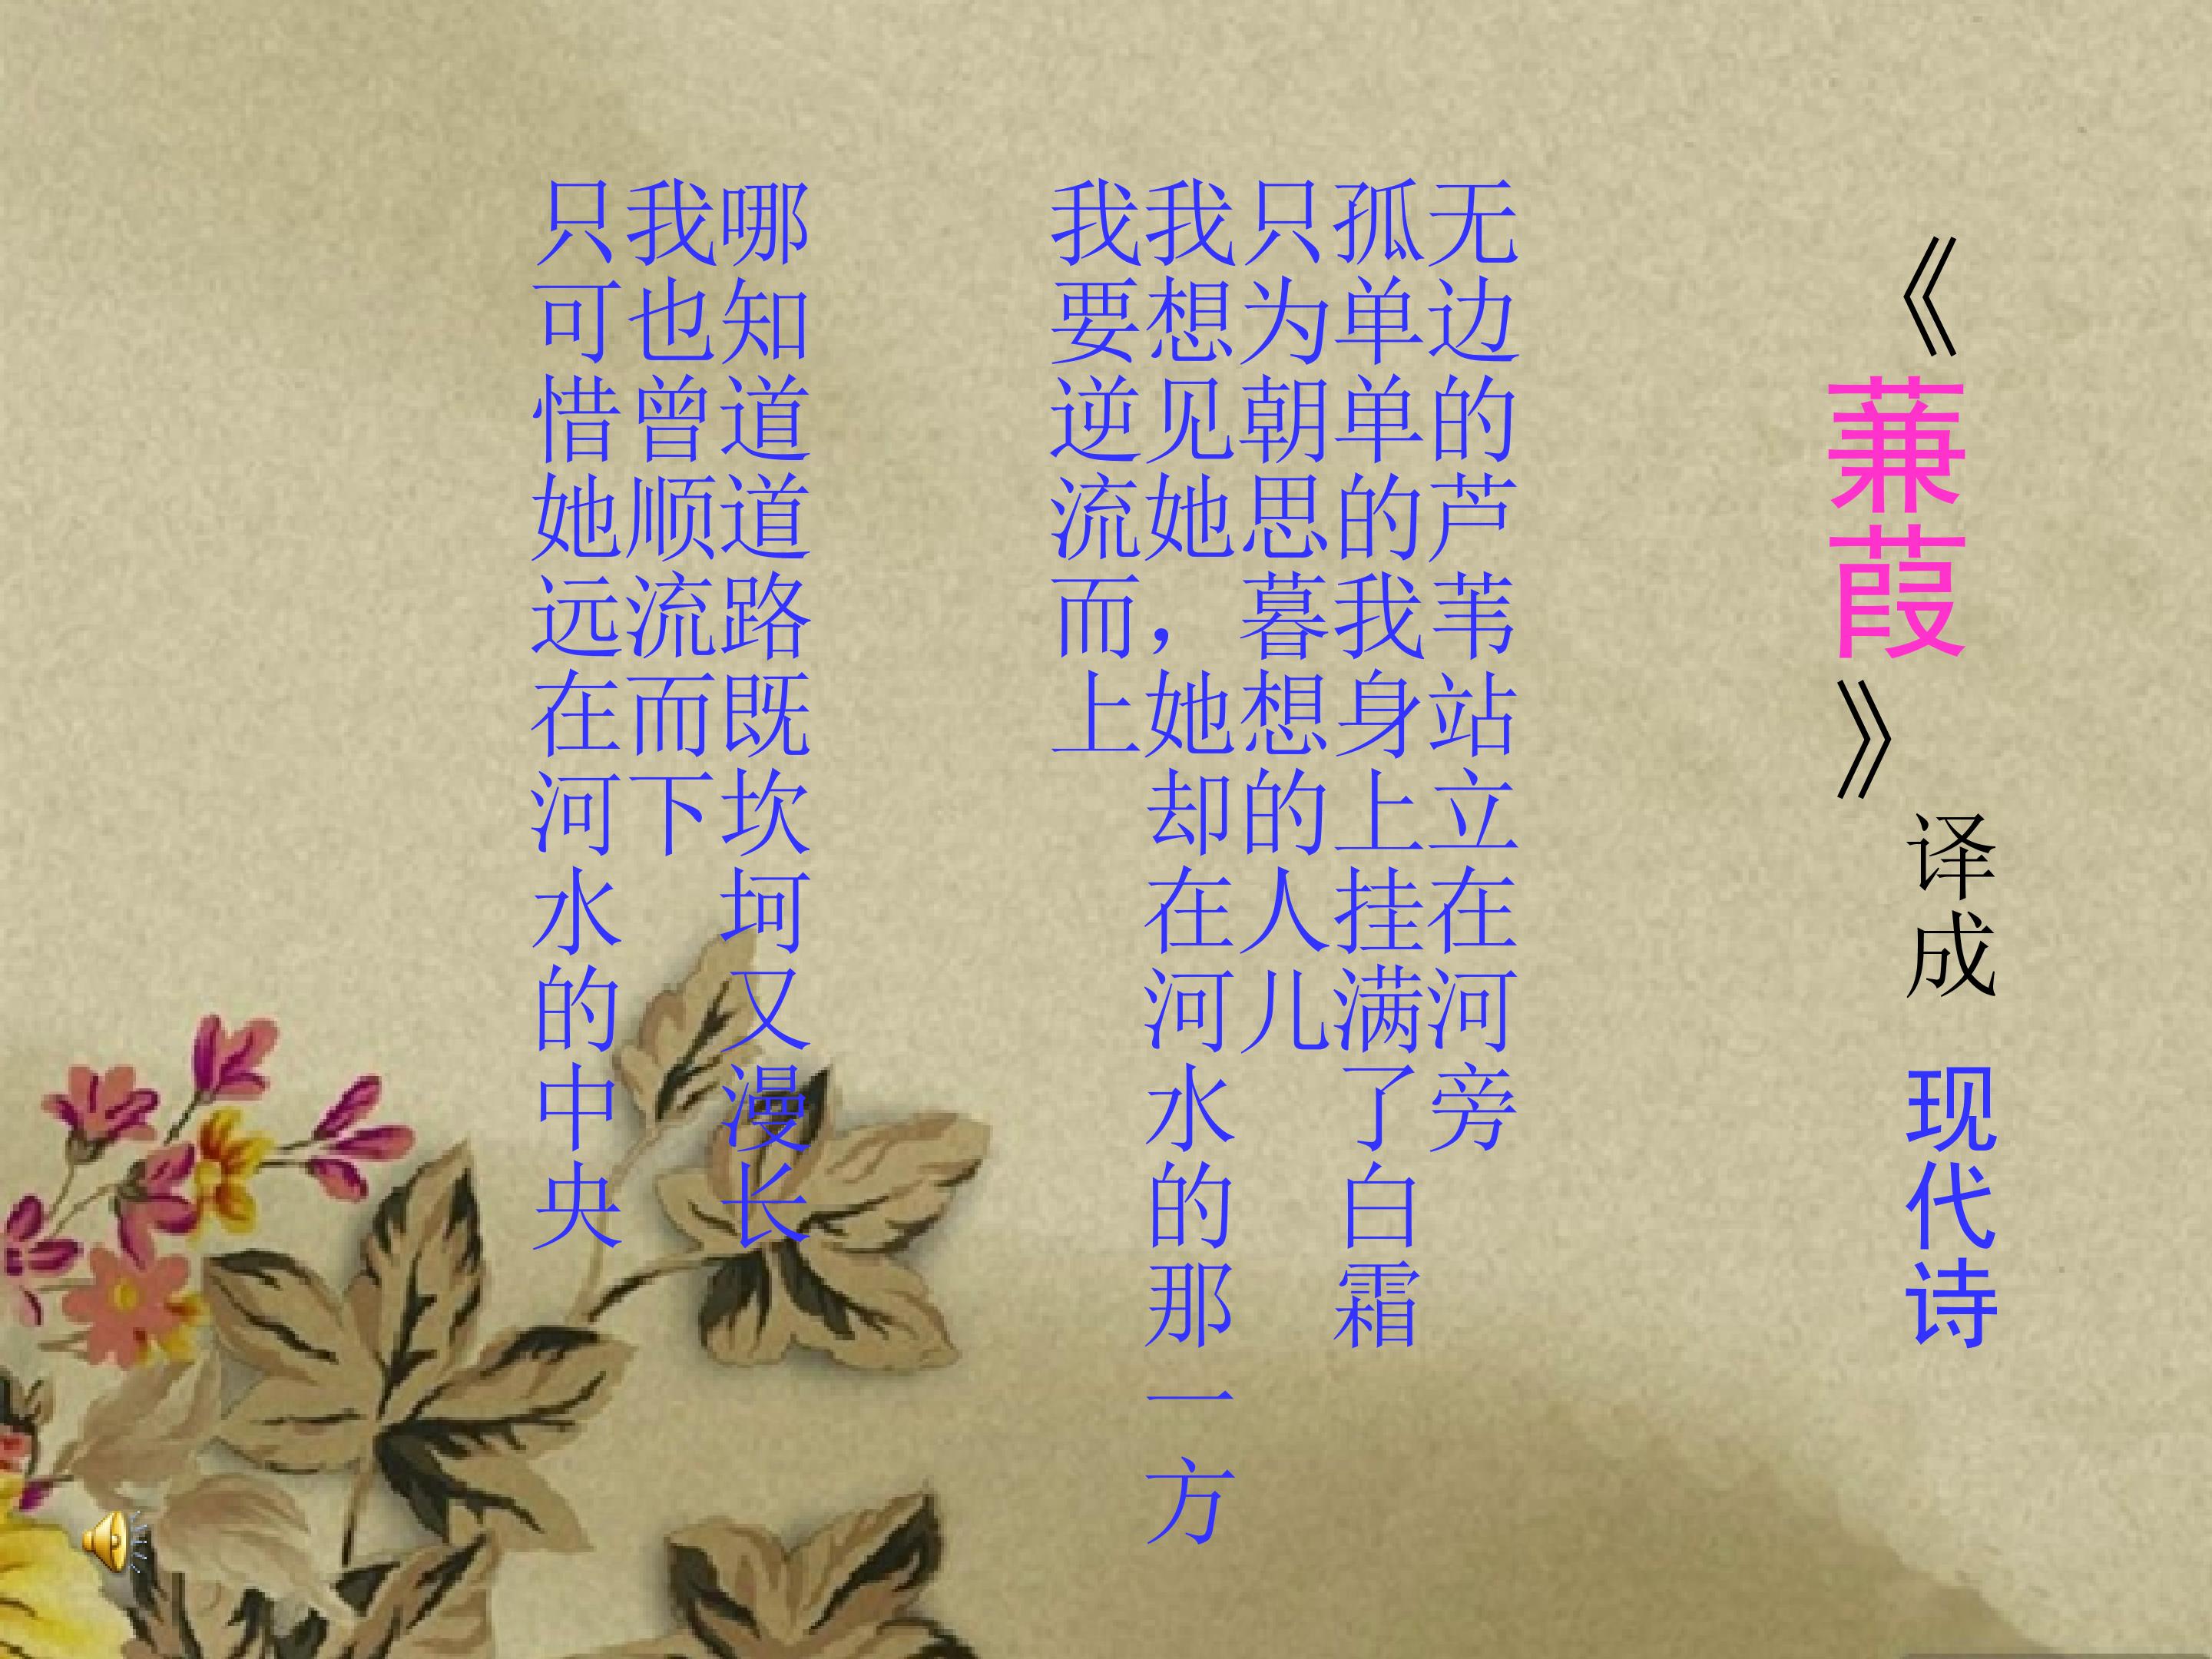 《蒹葭》译成 现代诗
无边的芦苇站立在河旁
孤单单的我身上挂满了白霜
只为朝思暮想的人儿
我想见她，她却在河水的那一方
我要逆流而上
哪知道道路既坎坷又漫长
我也曾顺流而下
只可惜她远在河水的中央